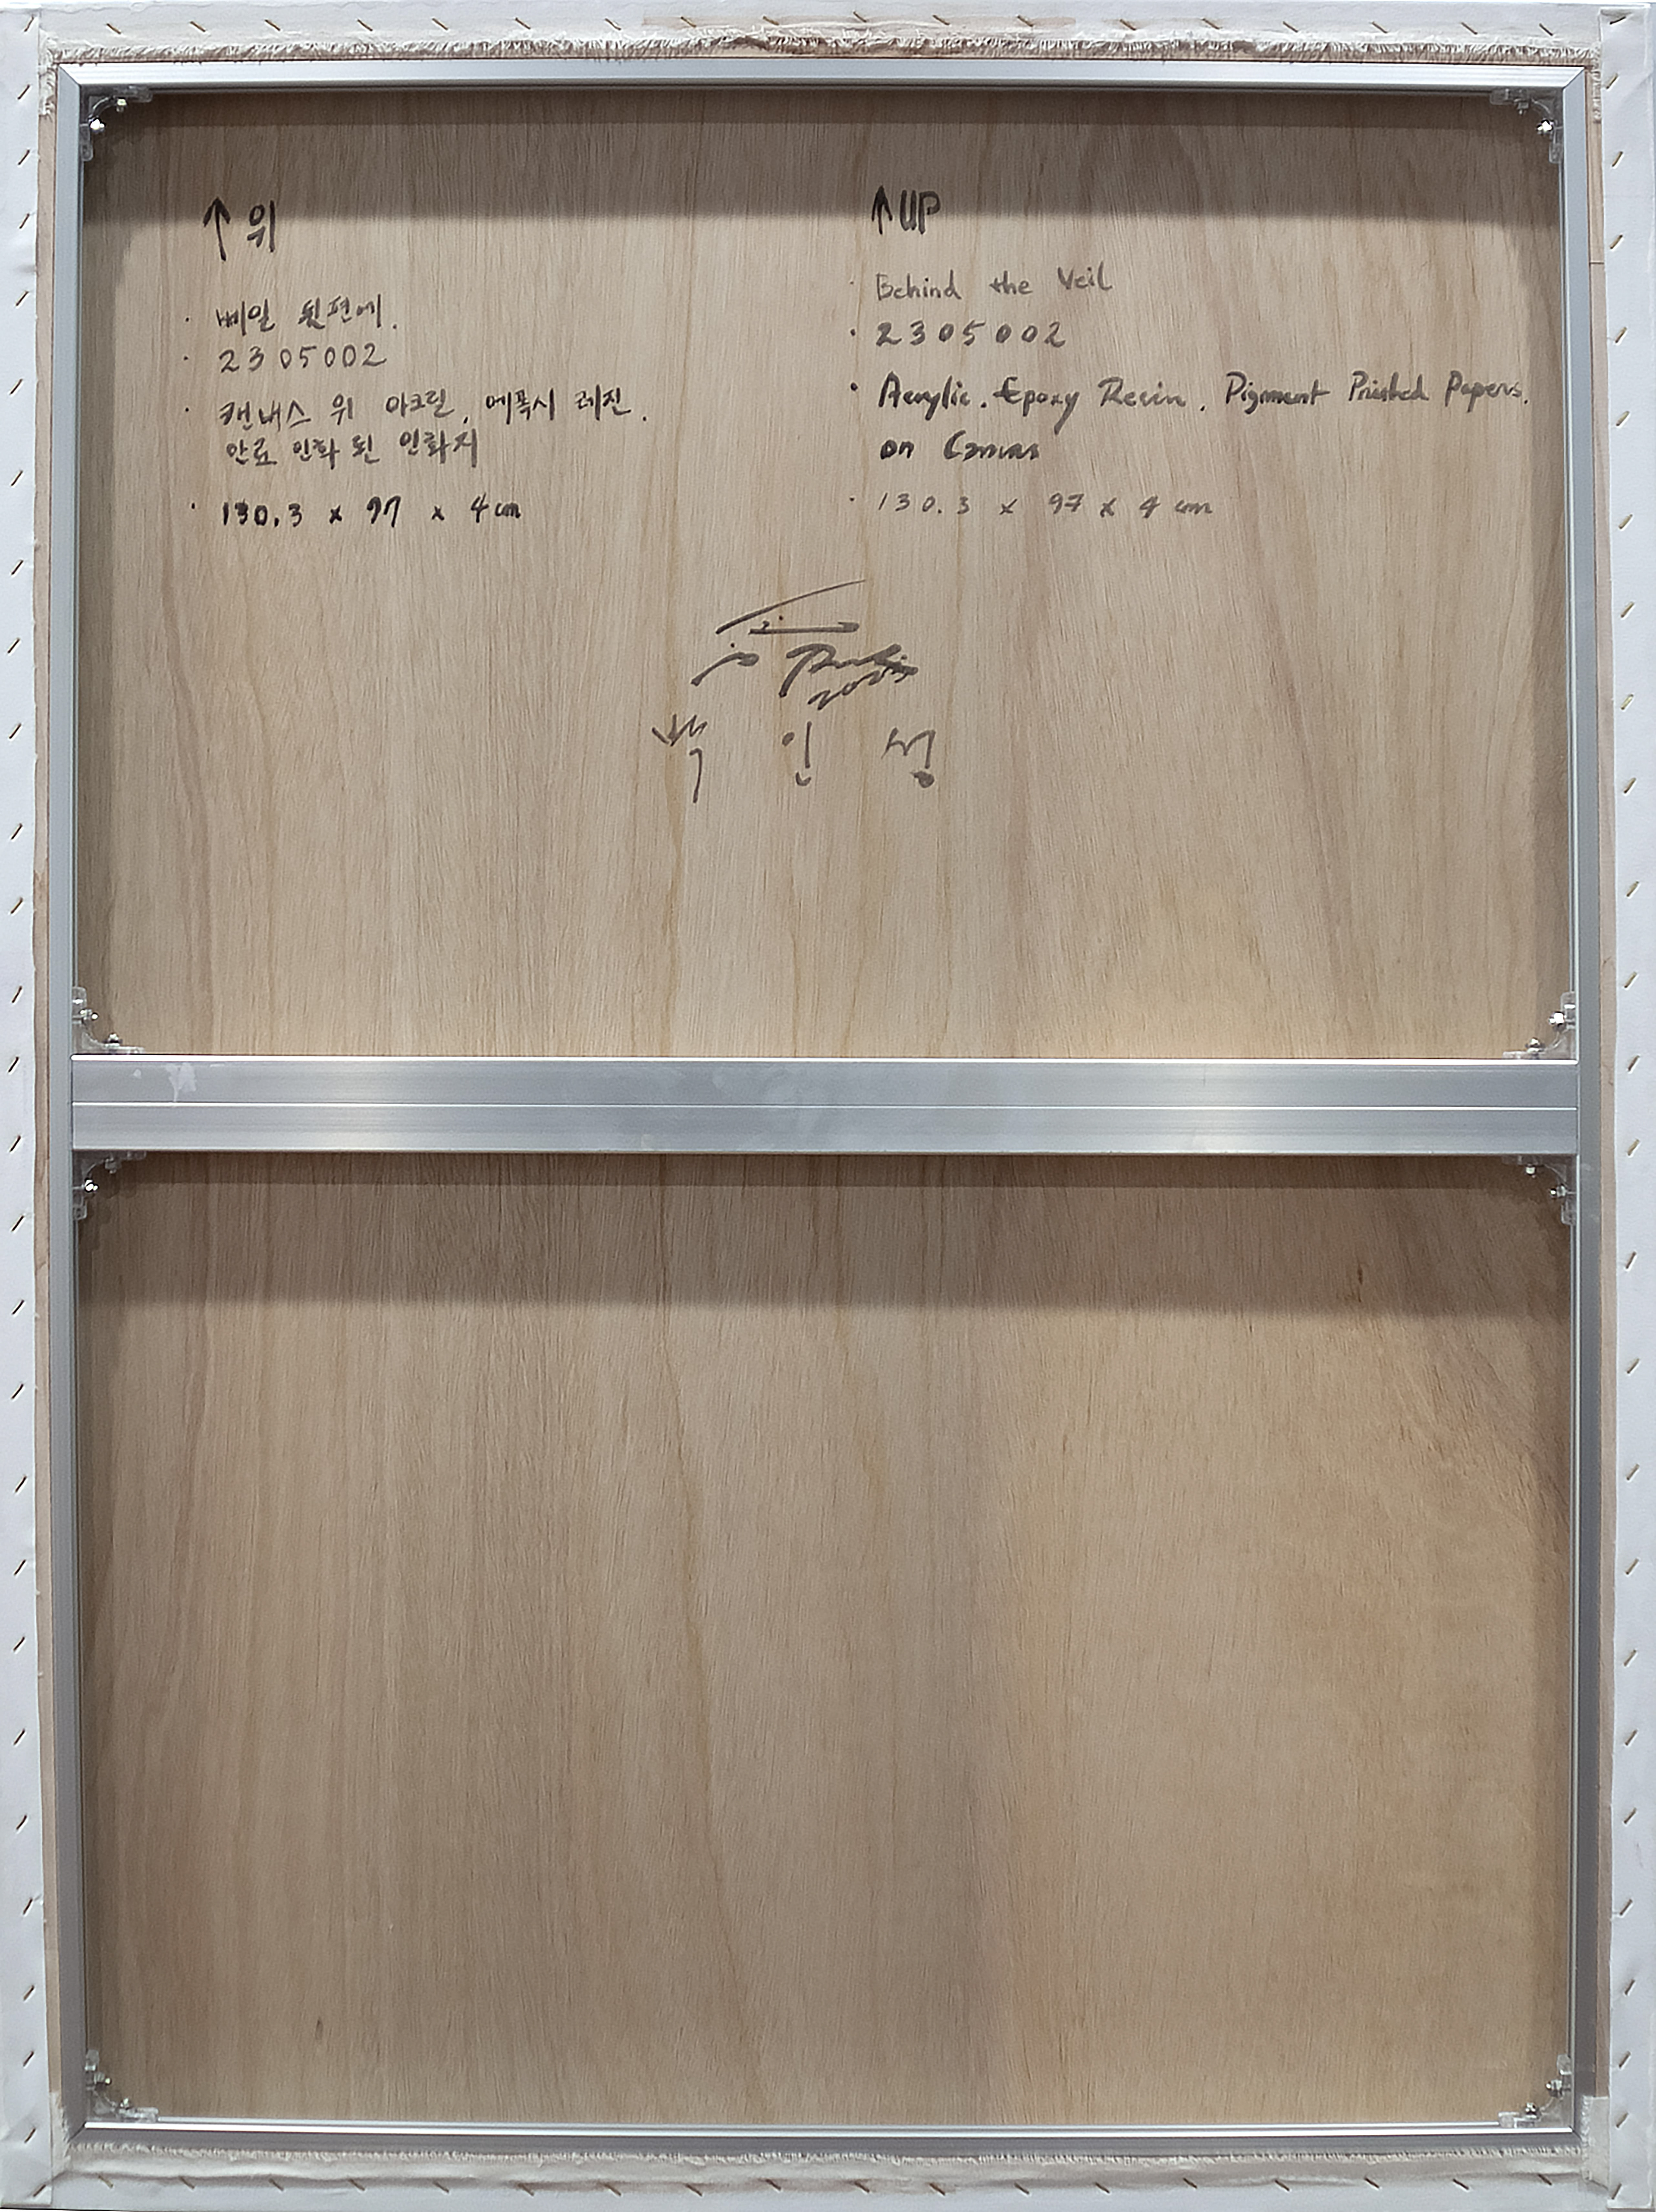 ↑ 위
· 베일 뒷편에.
· 2305002
· 캔내스 위 아크릴, 에폭시 레진.
안료 인화 된 인화지
· 130.3 x 97 x 4cm
↑ UP
· Behind the Veil
· 2305002
· Acrylic. Epoxy Resin. Pigment Printed Papers.
on Canvas
· 130.3 x 97 x 4 cm
백 인 성